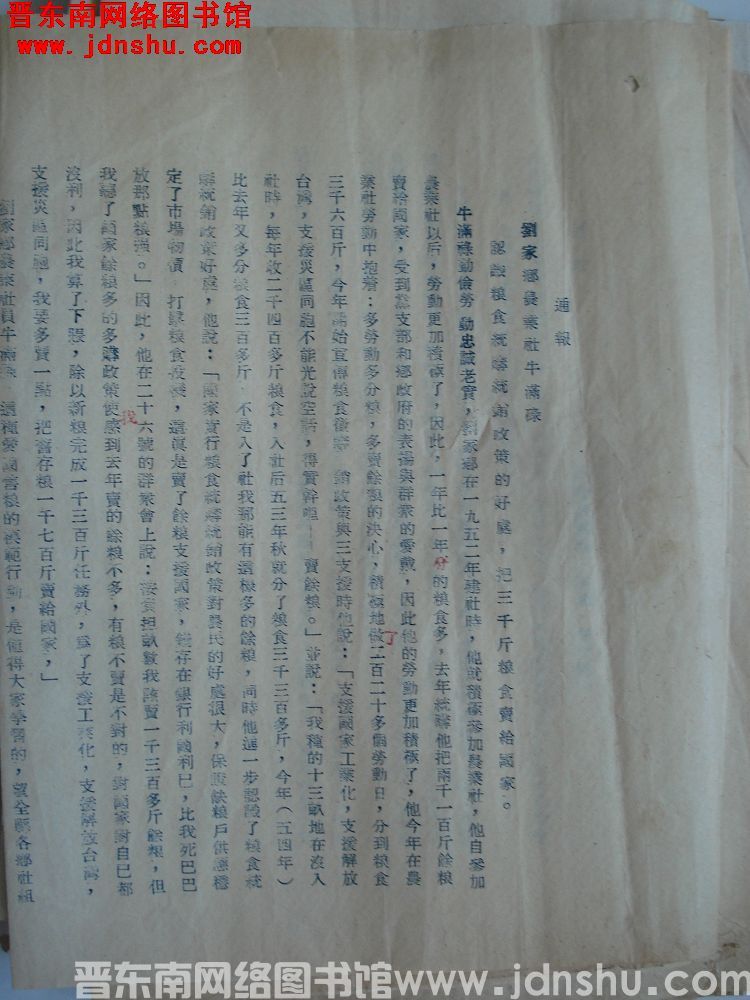 晋东南网络图书馆
www.jdnshu.com
通報
劉家鄉農業社牛滿祿
認識粮食統購統銷政策的好處，把三千斤粮食賣給國家。
牛滿祿勤儉勞動忠誠老實，劉家鄉在一九五二年建社時，他就積極參加農業社，他自參加
農業社以后，勞動更加積極了，因此，一年比一年分的粮食多，去年統購他把兩千一百斤餘粮
賣給國家，受到黨支部和鄉政府的表揚與群衆的愛戴，因此他的勞動更加積極了，他今年在農
業社勞動中抱着：多勞動多分粮，多賣餘粮的决心，積極地做了二百二十多個勞動日，分到粮食
三千六百斤，今年開始宣傳粮食徵購 銷政策與三支援時他說：「支援國家工業化，支援解放
台灣，支援災區同胞不能光說空話，得實幹哩——賣餘粮。」並說：「我種的十三畝地在沒入
社時，每年收二千四百多斤粮食，入社后五三年秋就分了粮食三千三百多斤，今年（五四年）
比去年又多分粮食三百多斤 不是入了社我那能有這樣多的餘粮，同時他進一步認識了粮食統
購統銷政策好處，他說：「國家實行粮食統購統銷政策對農民的好處很大，保證缺粮戶供應穩
定了市場物價 打擊粮食投機，還眞是賣了餘粮支援國家，錢存在銀行利國利己，比我死巴巴
放那點粮强。」因此，他在二十六號的群衆會上說：按實担畝數我該賣一千三百多斤餘粮，但
我聽了國家餘粮多的多購政策使我感到去年賣的餘粮不多，有粮不賣是不對的，對國家對自己都
沒利，因此我算了下賬，除以新粮完成一千三百斤任務外，爲了支援工業化，支援解放台灣，
支援災區同胞，我要多賣一點，把舊存粮一千七百斤賣給國家，」
劉家鄉農業社員牛滿祿 這種愛國售粮的模範行動，是値得大家學習的，望全縣各鄉社組
晋东南网络图书馆 www.jdnshu.com